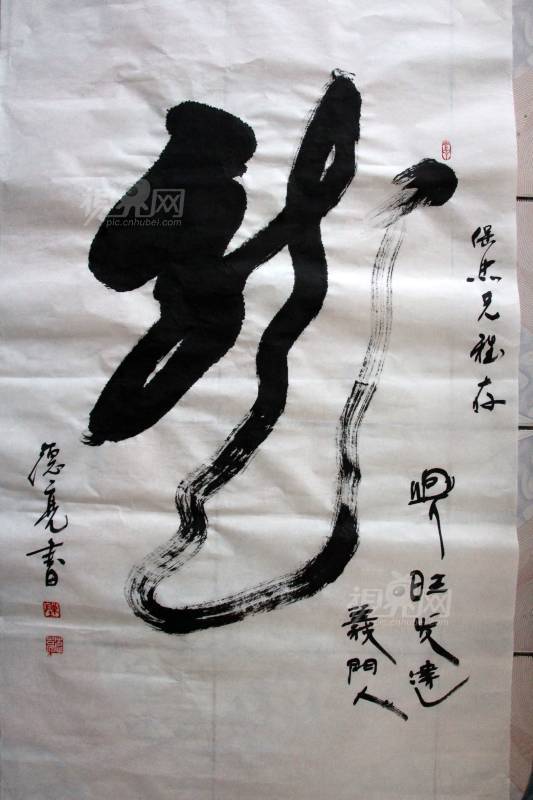 保忠兄雅存
龙
兴旺发达
義門人
德亮書
视界网
pic.cnhubei.com
视界网